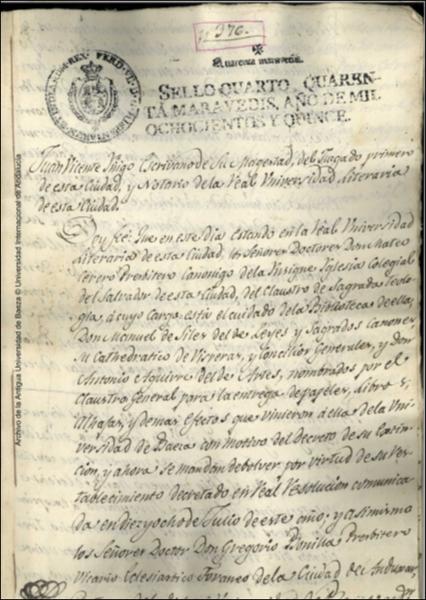 nº 376.
Quarenta maravedis.
SELLO QUARTO, QUAREN-
TA MARAVEDIS, AÑO DE MIL
OCHOCIENTOS Y QUINCE.
Juan Vicente Iñigo Escribano de Su Magestad, del Juzgado primero
de esta Ciudad, y Notario de la Real Universidad Literaria
de esta Ciudad.
Doy fee: Que en este dia estando en la Real Universidad
Literaria de esta Ciudad, los Señores Doctores Don Mateo
Cerero Presbitero Canonigo de la Insigne Iglesia Colegial
del Salvador de esta Ciudad, del Claustro de Sagrada Teolo-
gia, á cuyo cargo está el cuidado de la Biblioteca de ella;
Don Manuel de Siles del de Leyes y Sagrados Canones
Su Cathedratico de Visperas, y Concilios Generales, y Don
Antonio Aguirre del de Artes, nombrados por el
Claustro General para la entrega de papeles, Libros,
Alhajas, y demas efectos que vinieron á ella de la Uni-
versidad de Baeza con motivo del Decreto de su Extin-
cion, y ahora se mandan debolver por virtud de su Res-
tablecimiento decretado en Real Resolucion comunica-
da en diez y ocho de Julio de este año; y asimismo
los Señores Doctor Don Gregorio Bonilla Presbitero
Vicario Eclesiastico Foraneo de la Ciudad de Anduxar,
Archivo de la Antigua Universidad de Baeza © Universidad Internacional de Andalucía